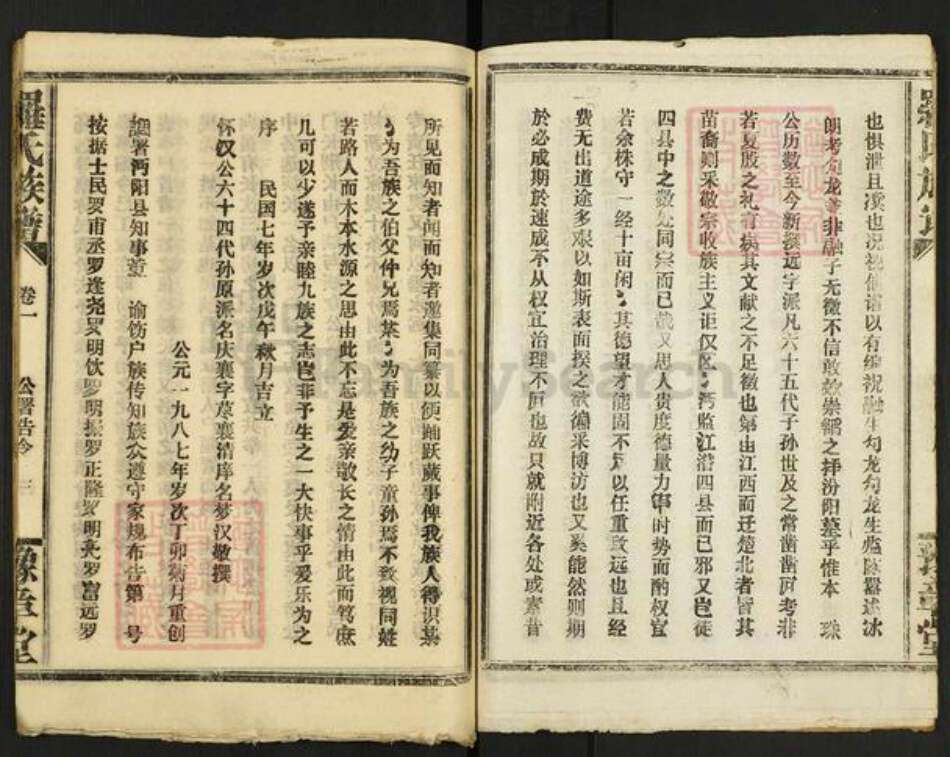 也惧泄且凟也况
以有编祝融生勾龙勾龙生
冰
朗考勾龙
非融子无徵不信敢效崇韬之拝汾阳墓乎惟本
公历数至今新撰远字派凡六十五代子孙世及之常凿凿可考非
若夏殷之礼有
其文献之不足徵也第由江西而迁楚北者皆其
苗裔则采敬宗收族主义讵仅区〻沔监江沿四县而已邪又岂徒
四县中之数
同宗而已哉又思人贵度德量力审时势而酌权宜
若余株守一经十亩闲〻其德望才能固不足以任重致远也且经
费无出道途多艰以如斯表面揆之欲徧采博访也又奚能然则期
於必成期於速成不从权宜治理不可也故只就附近各处或素昔
羅氏族譜
卷一
公署告令
三
豫章堂
所见而知者闻而知者邀集同纂以便踊跃蒇事俾我族人得识某
〻为吾族之伯父仲兄焉某〻为吾族之幼子童孙焉不致视同姓
若路人而木本水源之思由此不忘是爱亲敬长之情由此而笃庶
几可以少遂予亲睦九族之志岂非予生之一大快事乎爰乐为之
序
民国七年岁次戊午秋月吉立
怀汉公六十四代孙原派名庆襄字苾襄清庠名梦汉敬撰
公元一九八七年岁次丁卯菊月重创
署沔阳县知事董
谕饬户族传知族众遵守家规布告第 号
按据士民罗甫丞罗逢尧罗明饮罗明
罗正隆罗明亮罗富远罗